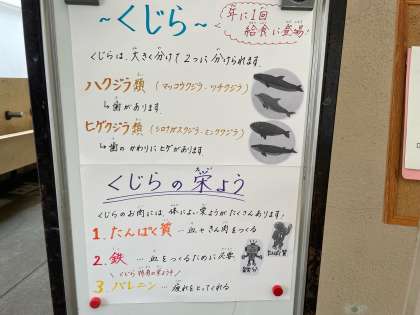 ～くじら～
年に1回
給食に登場!
くじらは、大きく分けて2つに分けられます。
ハクジラ類 (マッコウクジラ・ツチクジラ)
↳歯があります。
ヒゲクジラ類 (シロナガスクジラ・ミンククジラ)
↳歯のかわりにヒゲがあります。
くじらの栄よう
くじらのお肉には、体によい栄ようがたくさんあります!
1. たんぱく質 … 血やきん肉をつくる
2. 鉄 … 血をつくるために必要
くじら特有の栄よう!
3. バレニン … 疲れをとってくれる
たんぱく質
鉄分